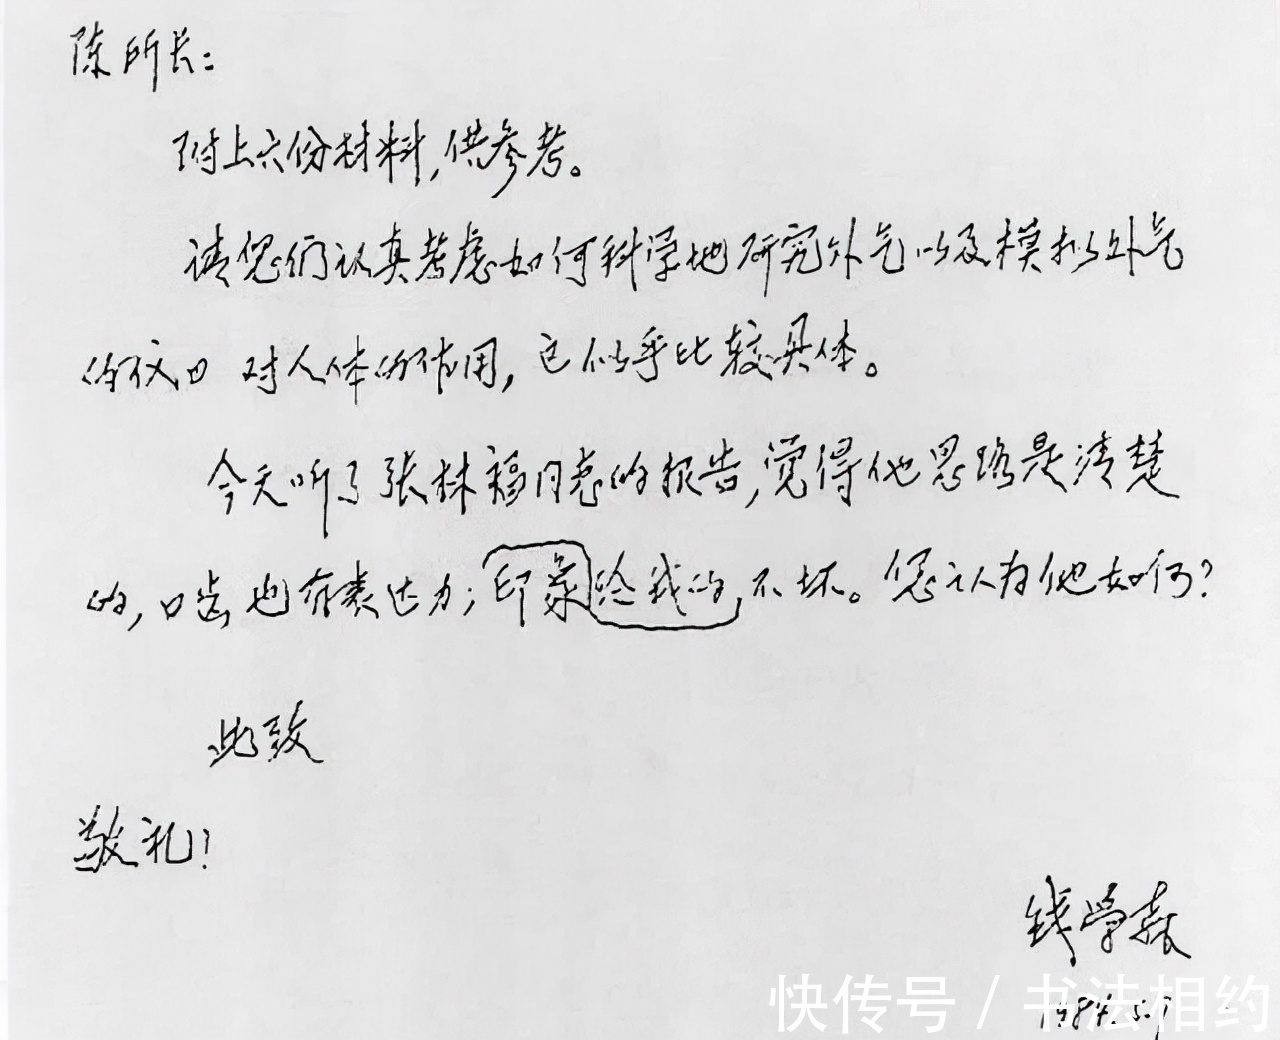 陈所长：
附上六份材料，供参考。
请您们认真考虑如何科学地研究外气以及模拟外气
的仪口对人体的作用，它似乎比较具体。
今天听了张林福同志的报告，觉得他思路是清楚
的，口齿也有表达力；印象给我的，不坏。您认为他如何？
此致
敬礼！
钱学森
1984.5.9
快传号 / 书法相约